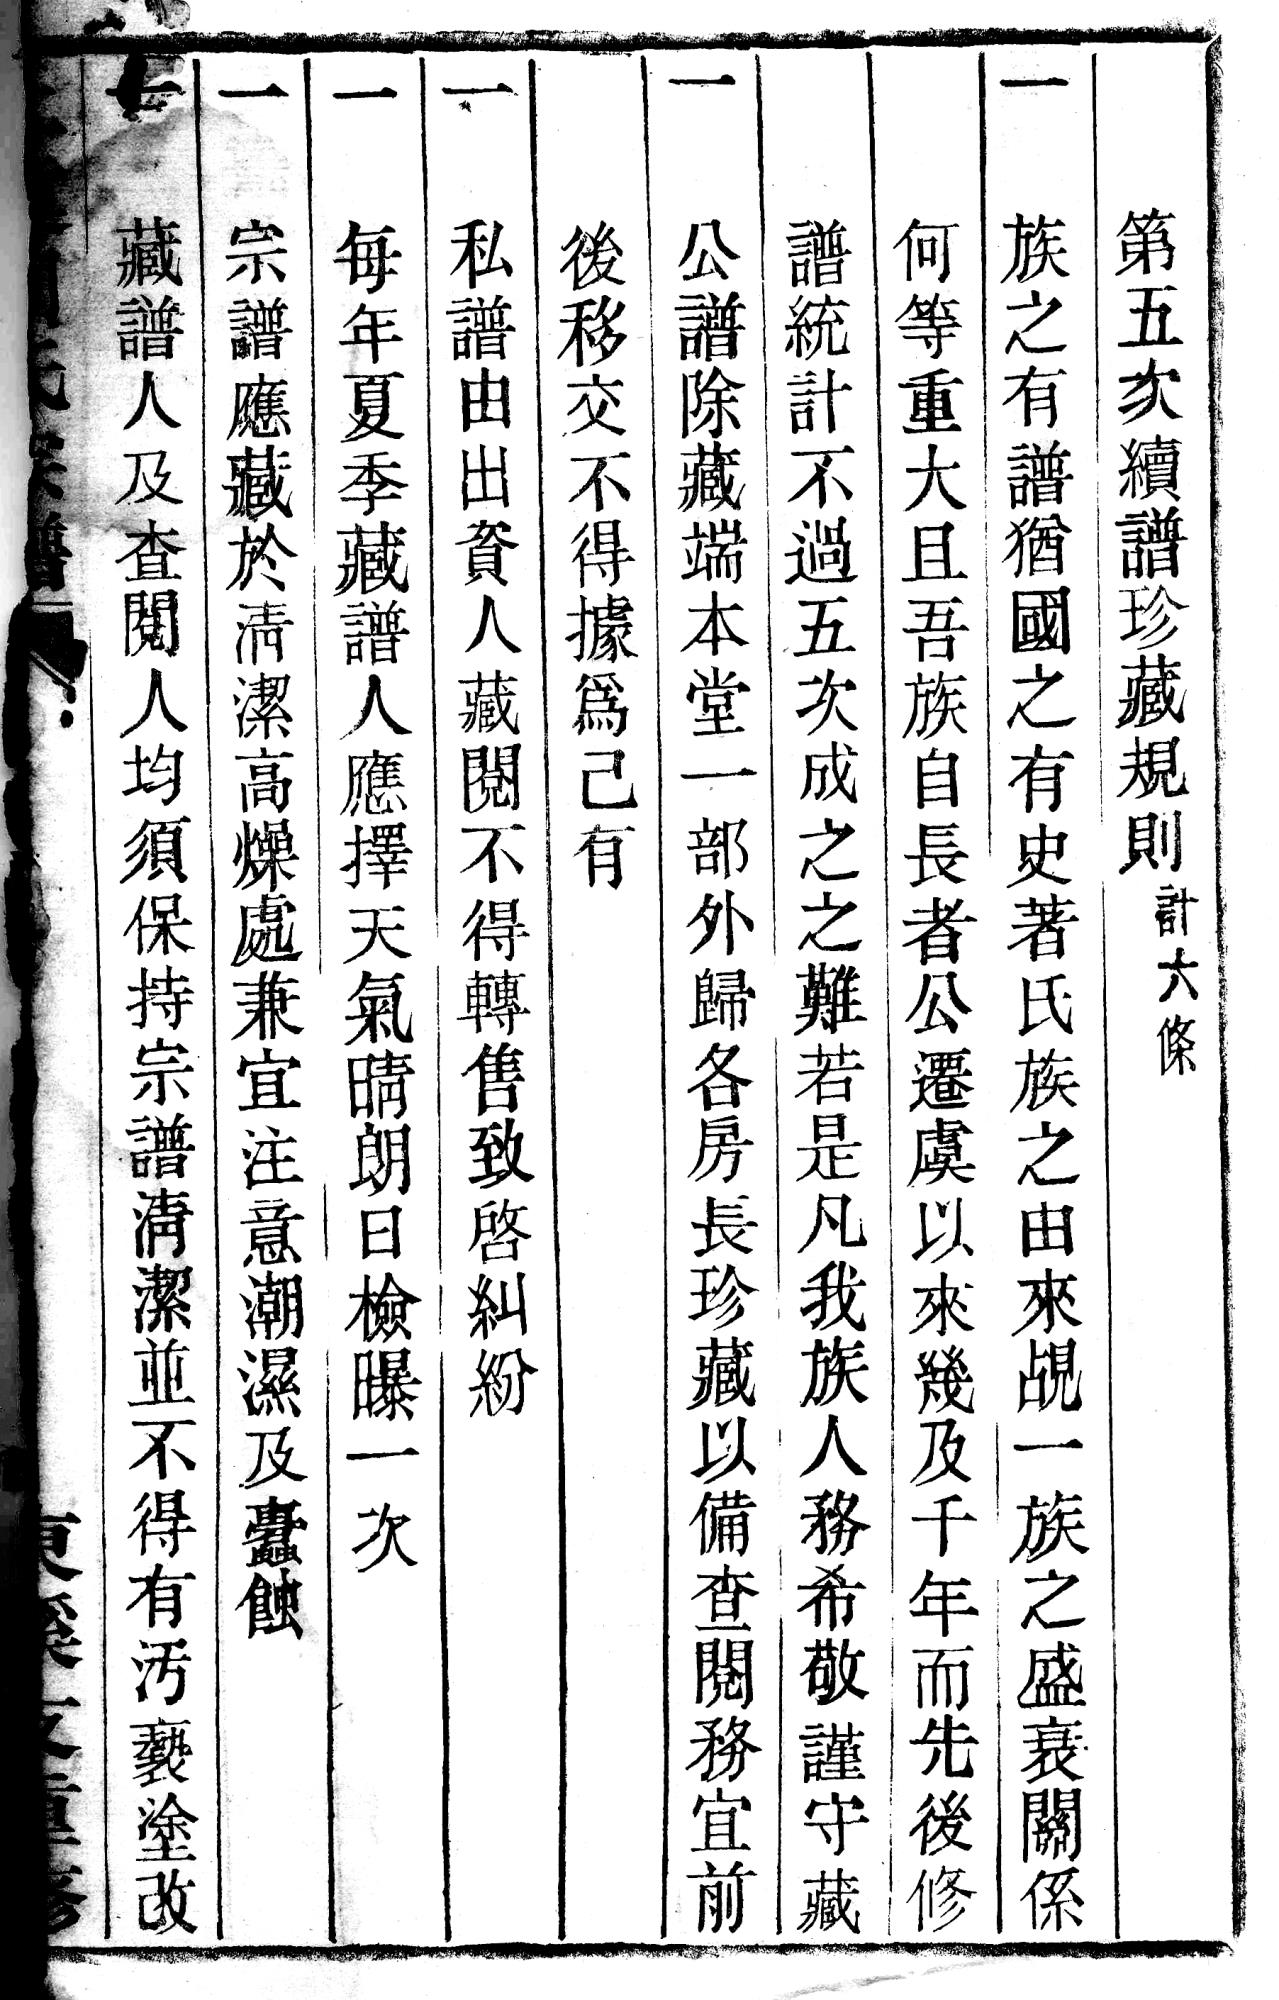 第五次續譜珍藏規則計六條
一 族之有譜猶國之有史著氏族之由來覘一族之盛衰關係
何等重大且吾族自長者公遷虞以來幾及千年而先後修
譜統計不過五次成之之難若是凡我族人務希敬謹守藏
一 公譜除藏端本堂一部外歸各房長珍藏以備查閱務宜前
後移交不得據爲己有
一 私譜由出資人藏閱不得轉售致啓糾紛
一 每年夏季藏譜人應擇天氣晴朗日檢曝一次
一 宗譜應藏於清潔高燥處兼宜注意潮濕及蠹蝕
一 藏譜人及查閱人均須保持宗譜清潔並不得有汚褻塗改
氏宗譜
東溪支重修